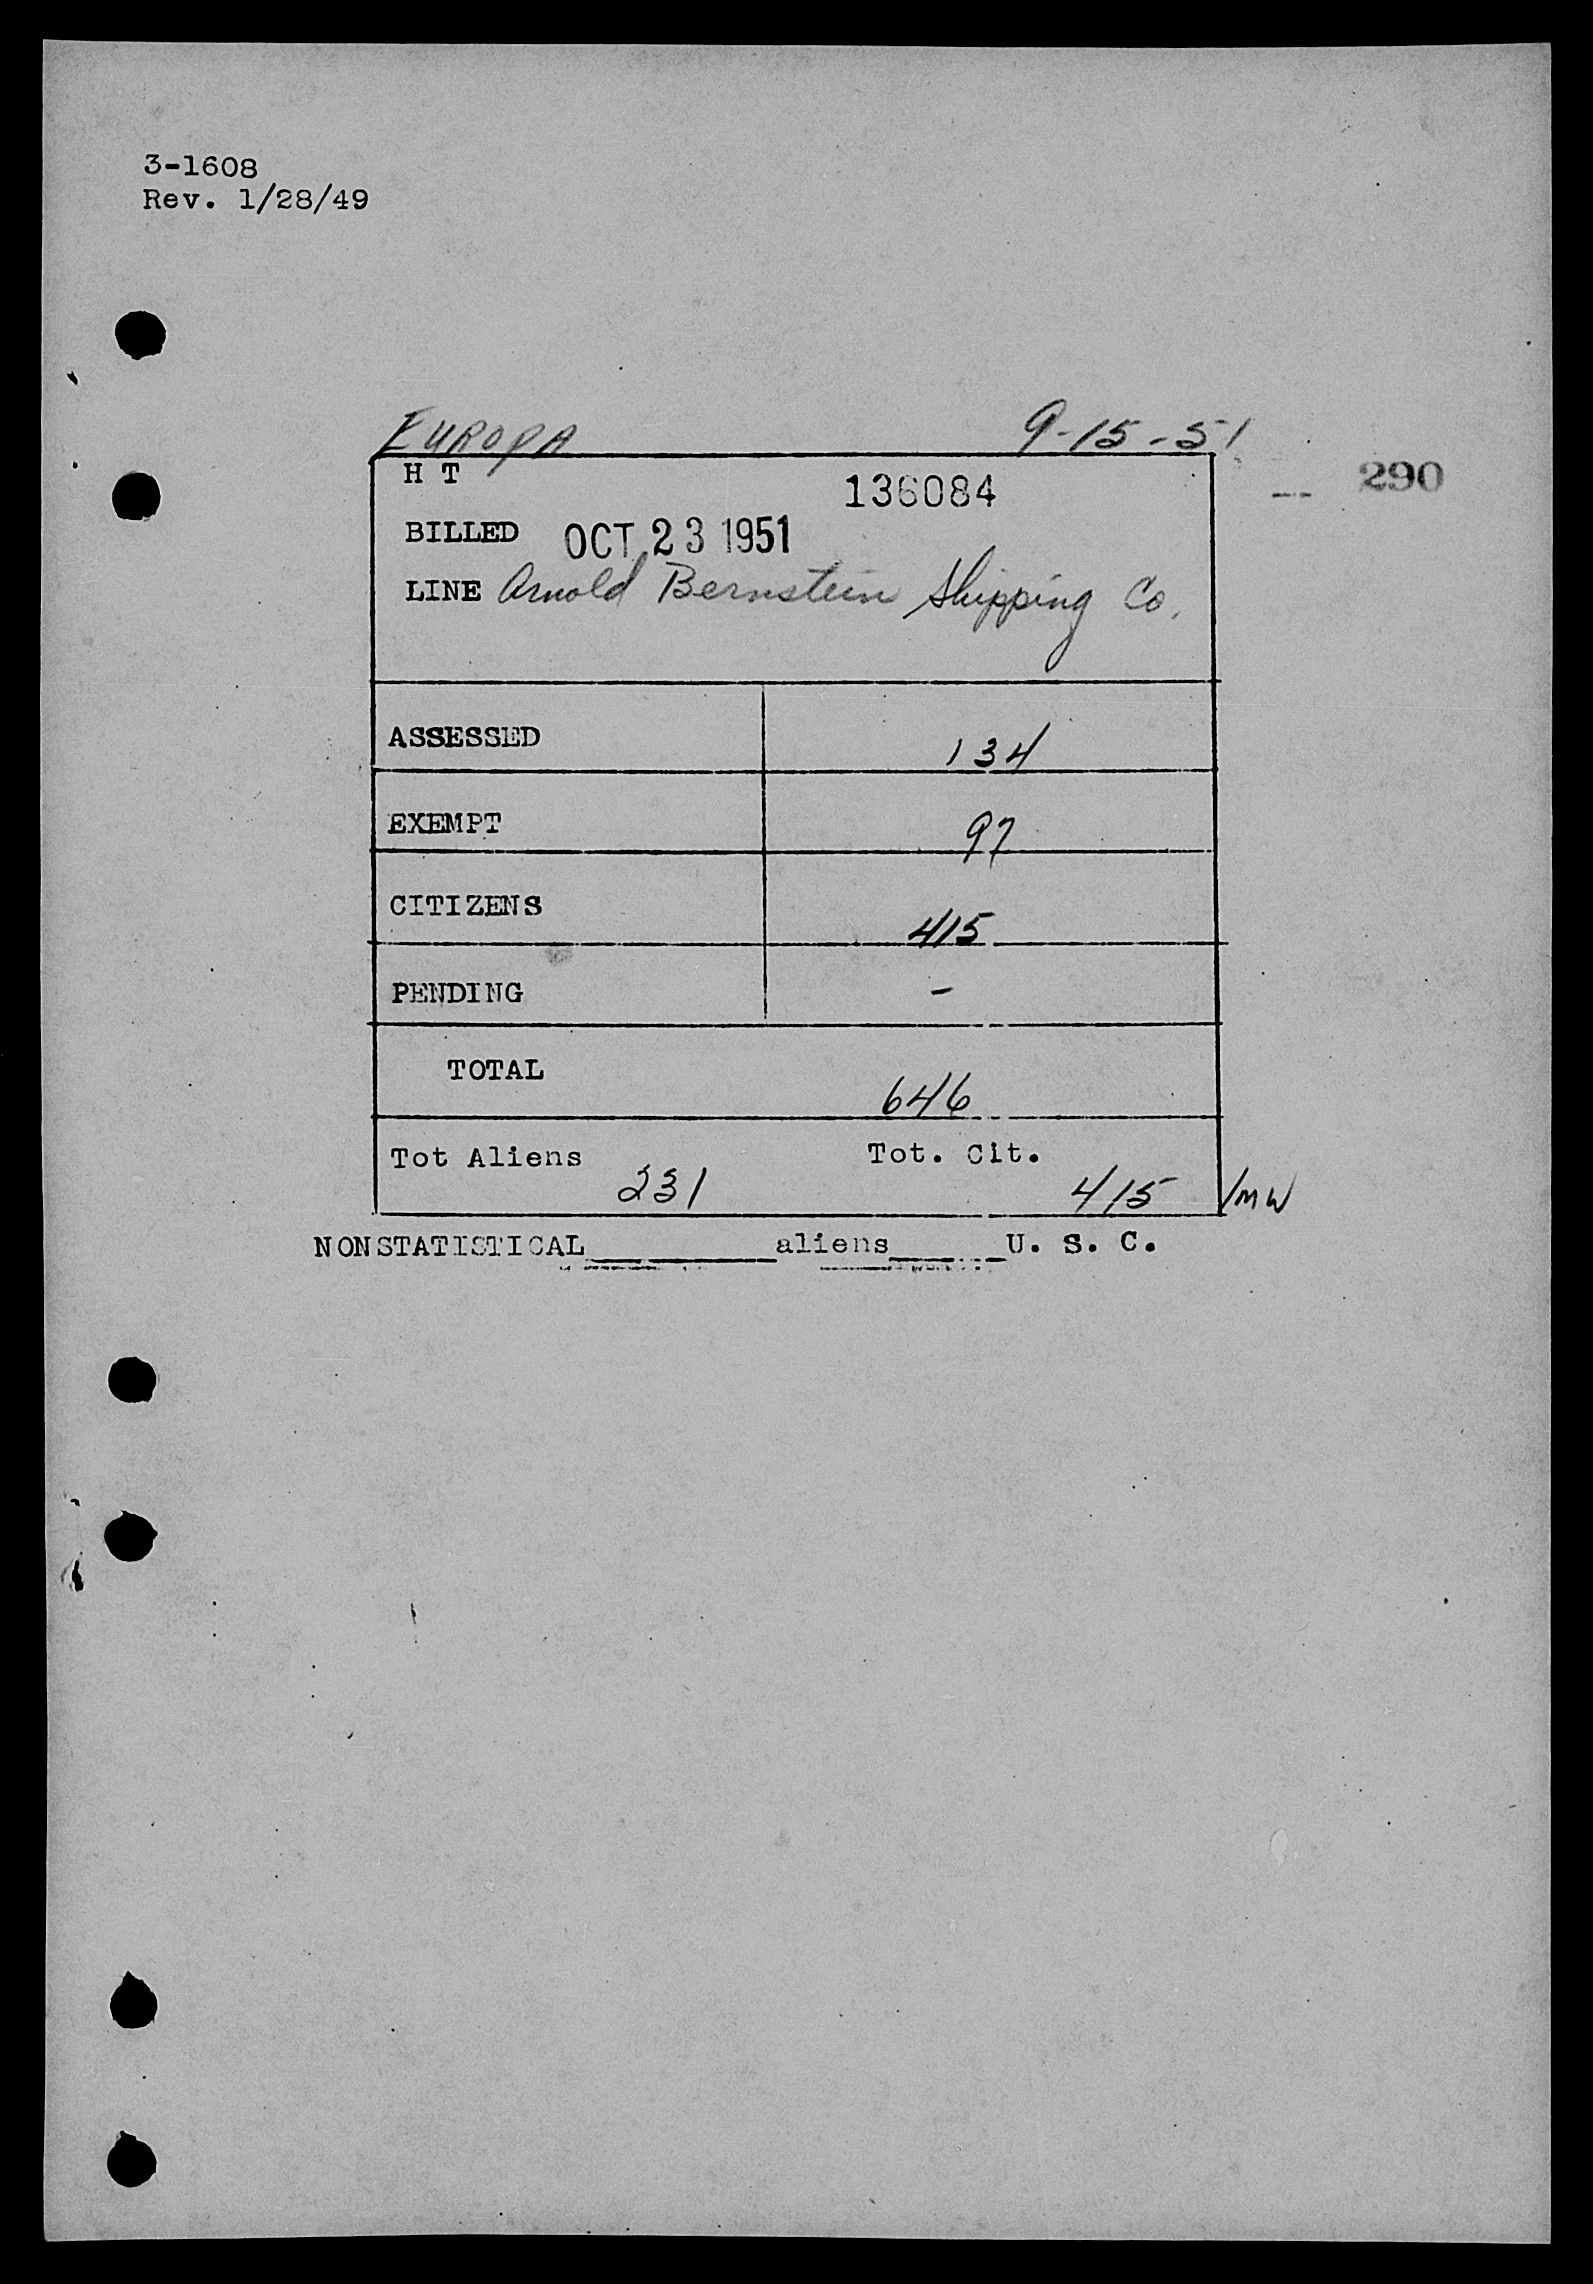 3-1608
Rev. 1/28/49
EUROPA 9-15-51
H T 136084 290
BILLED OCT 23 1951
LINE Arnold Bernstein Shipping Co.
ASSESSED 134
EXEMPT 97
CITIZENS 415
PENDING -
TOTAL 646
Tot Aliens 231 Tot. Cit. 415 /MW
NONSTATISTICAL__________aliens______U. S. C.